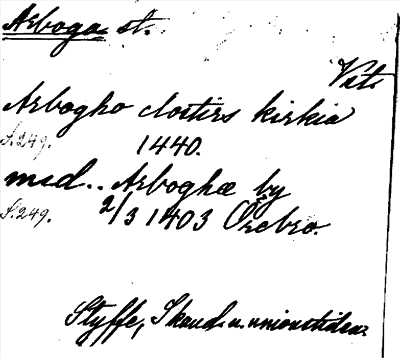 Arboga st.
Vstm
Arbogho closters kirkia
S. 249. 1440.
med.. Arboghæ by
S. 249. 2/3 1403 Örebro.
Styffe, Skand. u. unionstiden.